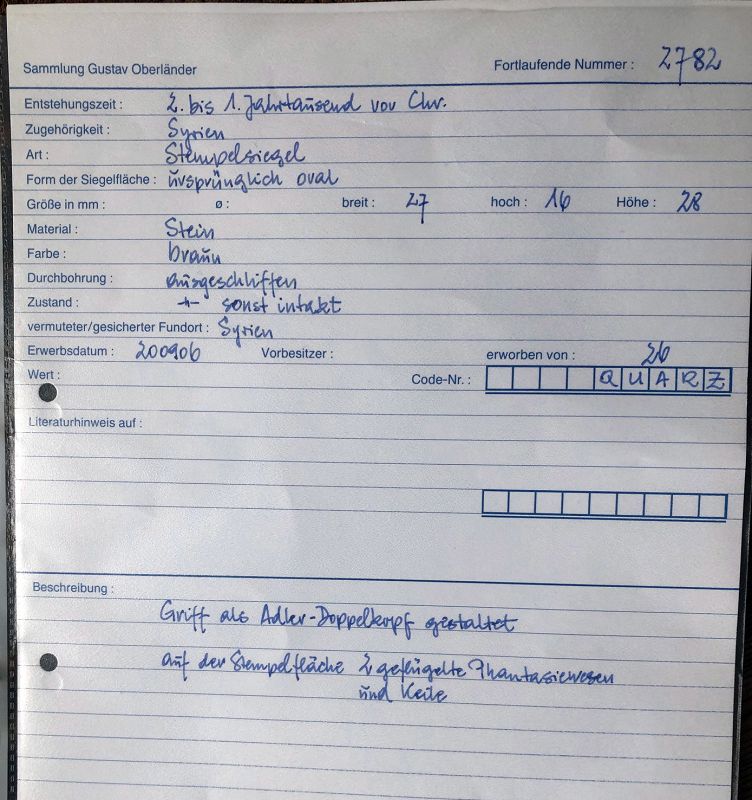 Sammlung Gustav Oberländer Fortlaufende Nummer : 2782
Entstehungszeit : 2. bis 1. Jahrtausend vor Chr.
Zugehörigkeit : Syrien
Art : Stempelsiegel
Form der Siegelfläche : ursprünglich oval
Größe in mm : ø : breit : 27 hoch : 16 Höhe : 28
Material : Stein
Farbe : braun
Durchbohrung : ausgeschliffen
Zustand : -"- sonst intakt
vermuteter/gesicherter Fundort : Syrien
Erwerbsdatum : 200906 Vorbesitzer : erworben von : 26
Wert : Code-Nr. : QUARZ
Literaturhinweis auf :
Beschreibung :
Griff als Adler-Doppelkopf gestaltet
auf der Stempelfläche 2 geflügelte Phantasiewesen
und Keile